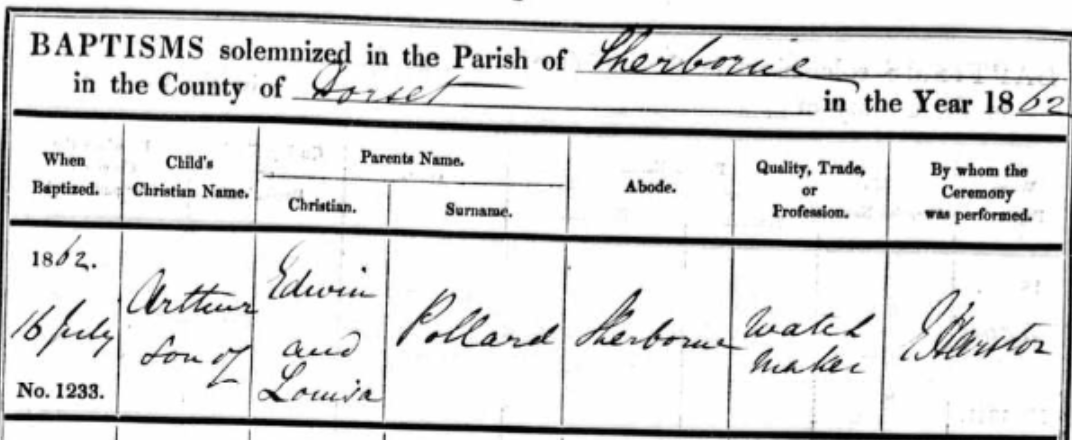 BAPTISMS solemnized in the Parish of Sherborne
in the County of Dorset in the Year 1862
When Baptized.
Child's Christian Name.
Parents Name.
Christian.
Surname.
Abode.
Quality, Trade, or Profession.
By whom the Ceremony was performed.
1862.
16 July
No. 1233.
Arthur
son of
Edwin
and
Louisa
Pollard
Sherborne
Watch
Maker
Harston